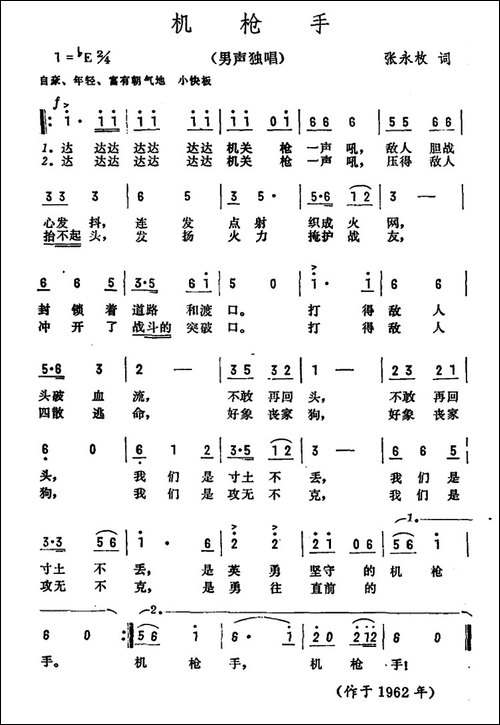 机 枪 手
1=♭E 2/4 (男声独唱) 张永枚 词
自豪、年轻、富有朝气地 小快板
1。达 达达 达达 达达 达达 机关 枪 一声 吼, 敌人 胆战
2。达 达达 达达 达达 达达 机关 枪 一声 吼, 压得 敌人
心发 抖, 连 发 点 射 织成 火 网,
抬不起 头, 发 扬 火 力 掩护 战 友,
封 锁 着 道路 和渡 口。 打 得 敌 人
冲 开 了 战斗的 突破 口。 打 得 敌 人
头破 血 流, 不敢 再回 头, 不敢 再回
四散 逃 命, 好象 丧家 狗, 好象 丧家
头, 我 们 是 寸土 不 丢, 我 们 是
狗, 我 们 是 攻无 不 克, 我 们 是
1。
寸土 不 丢, 是 英 勇 坚守 的 机 枪
攻无 不 克, 是 勇 往 直前 的
2。
手。 机 枪 手, 机 枪 手!
(作于 1962 年)